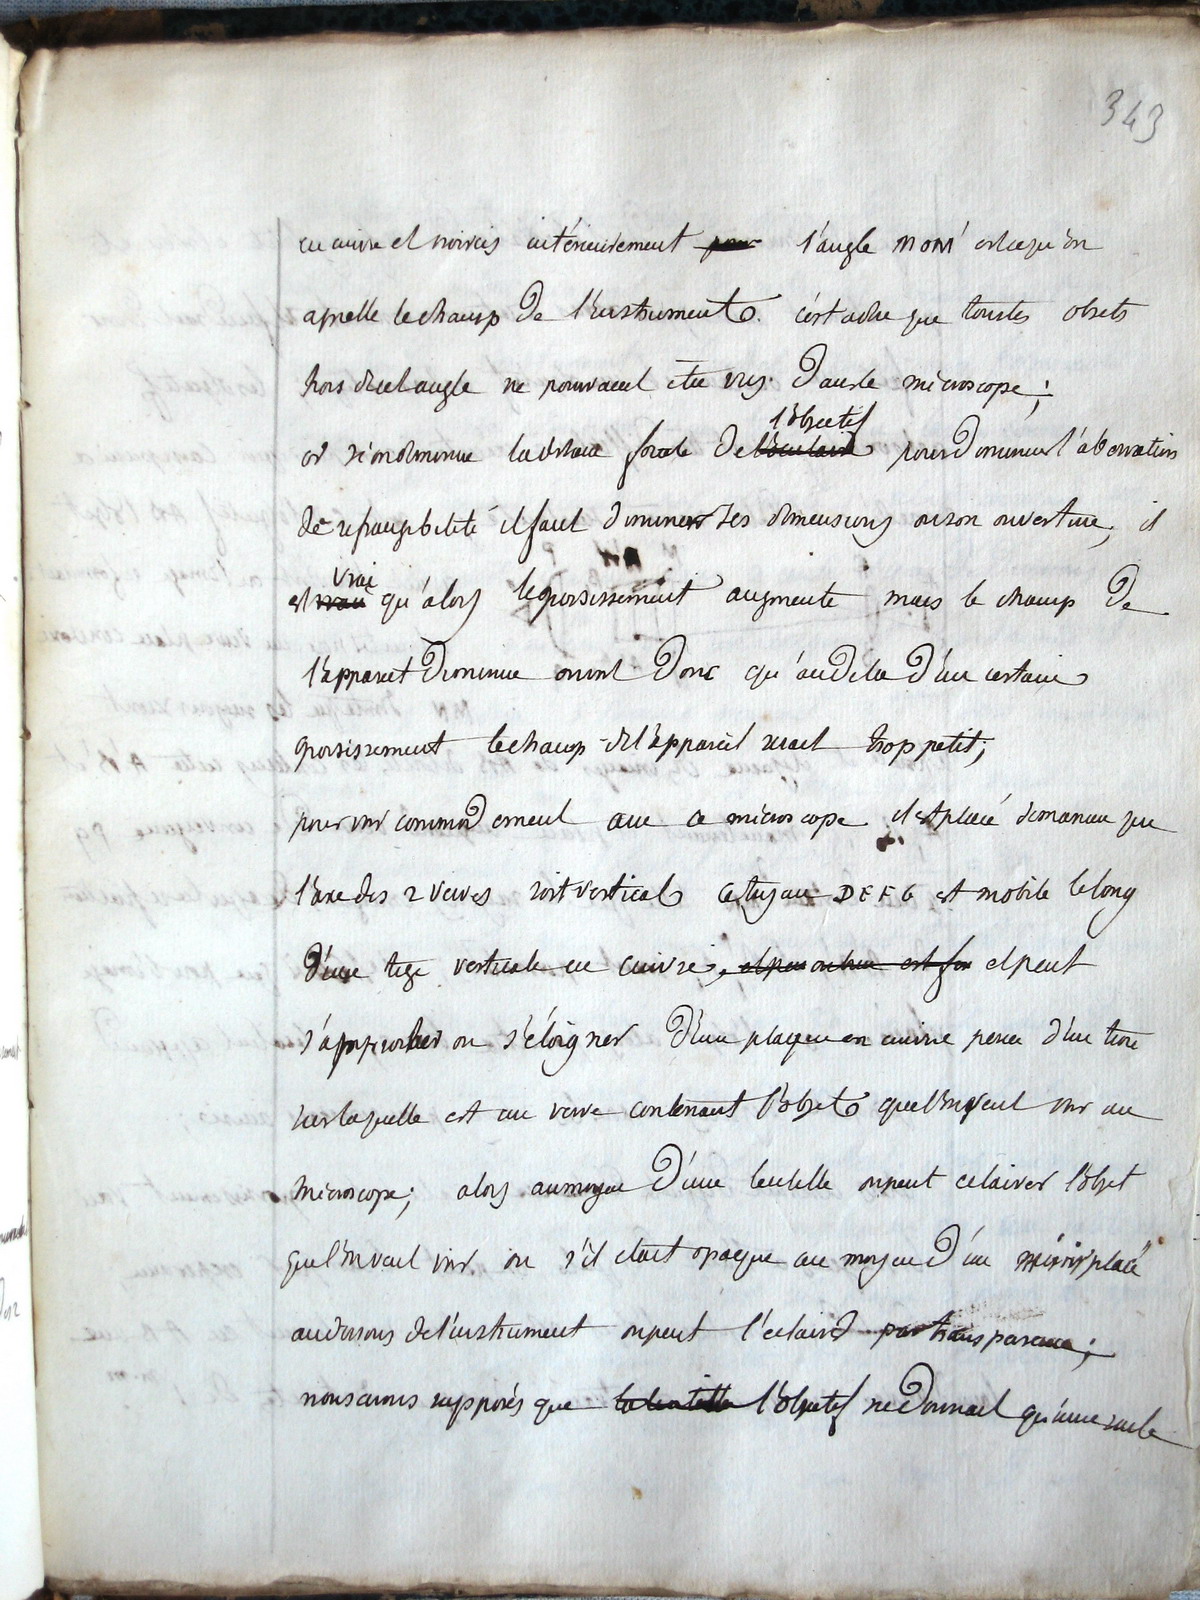 343
en cuivre et noircis intérieurement pour l'angle MOM' est ce qu'on
appelle le champ de l'instrument. c'est adire que touts les objets
hors de cet angle ne pourraient être vus dans le microscope;
l'objectif
or si on diminue la distance focale de l'oculaire pour diminuer l'aberration
de refrangibilité il faut diminuer ses dimensions ou son ouverture, il
vrai
est vrai qu'alors le grossissement augmente mais le champ de
l'appareil diminue on voit donc qu'au dela d'un certain
grossissement le champ de l'appareil serait trop petit;
pour voir commodement avec ce microscope il est placé de maniere que
l'axe des 2 verres soit vertical ce tuyau DEFG est mobile le long
d'une tige verticale en cuivre, et peut
s'approcher ou s'éloigner d'une plaque en cuivre percée d'un trou
sur laquelle est un verre contenant l'objet que l'on veut voir au
microscope; alors au moyen d'une lentille on peut eclairer l'objet
que l'on veut voir ou s'il etait opaque au moyen d'un miroir placé
au dessous de l'instrument on peut l'eclairer par transparence;
nous avons supposés que la lentille l'objectif ne donnait qu'une seule